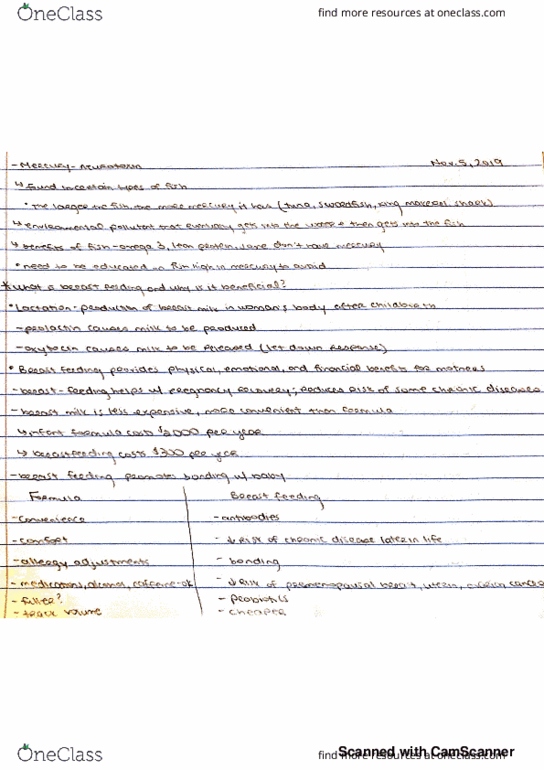 OneClass
find more resources at oneclass.com
- Mercury - neurotoxin Nov. 5, 2019
↳ found in certain types of fish
• the larger the fish, the more mercury it has (tuna, swordfish, king mackerel, shark)
↳ environmental pollutant that eventually gets into the water + then gets into the fish
↳ benefits of fish - omega 3, lean protein, some don't have mercury
• need to be educated on fish high in mercury to avoid
* what is breast feeding and why is it beneficial?
• Lactation - production of breast milk in woman's body after childbirth
- prolactin causes milk to be produced
- oxytocin causes milk to be released (let down response)
• Breast feeding provides physical, emotional, and financial benefits for mothers
- breast-feeding helps w/ pregnancy recovery; reduces risk of some chronic diseases
- breast milk is less expensive, more convenient than formula
↳ infant formula costs $2000 per year
↳ breastfeeding costs $300 per year
- breast feeding promotes bonding w/ baby
Formula Breast feeding
- convenience - antibodies
- comfort - ↓ risk of chronic disease later in life
- allergy adjustments - bonding
- medications, alcohol, caffeine - ok - ↓ risk of premenopausal breast, uterin, ovarian cancer
- fuller? - probiotics
- track volume - cheaper
OneClass
find more resources at oneclass.com
Scanned with CamScanner